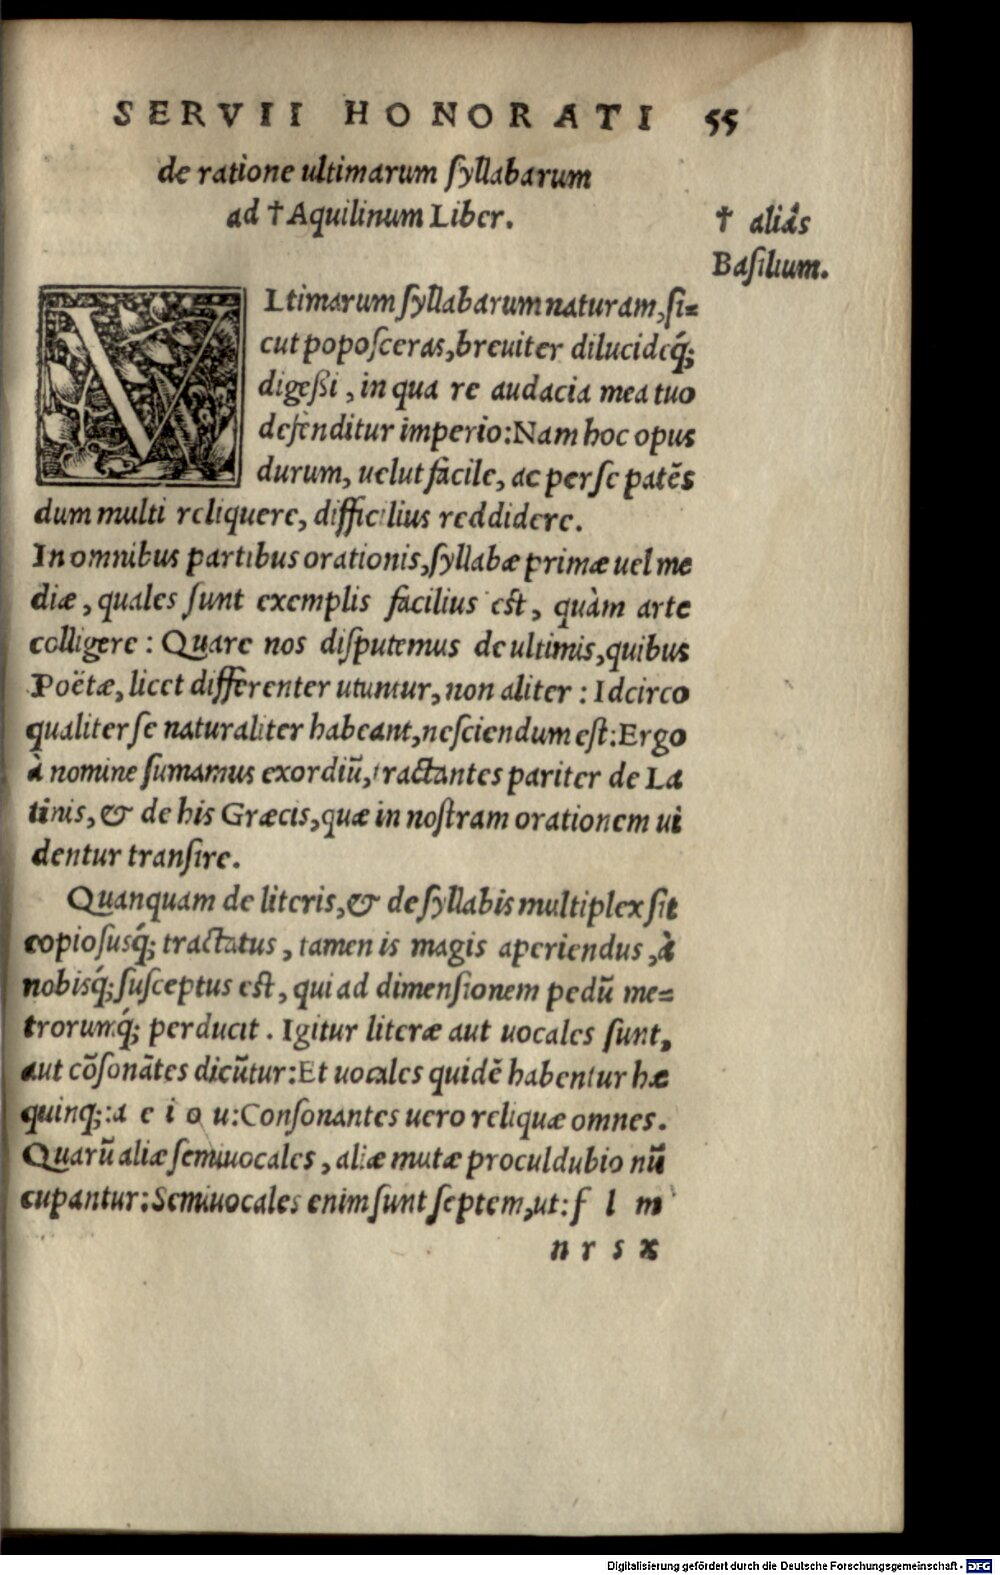 SERVII HONORATI 55
de ratione ultimarum ſyllabarum
ad † Aquilinum Liber.
† aliâs
Baſilium.
VLtimarum ſyllabarum naturam, ſi=
cut popoſceras, breuiter dilucideq́;
digeßi, in qua re audacia mea tuo
defenditur imperio: Nam hoc opus
durum, uelut facile, ac per ſe patẽs
dum multi reliquere, difficilius reddidere.
In omnibus partibus orationis, ſyllabæ primæ uel me
diæ, quales ſunt exemplis facilius eſt, quàm arte
colligere: Quare nos diſputemus de ultimis, quibus
Poëtæ, licet differenter utuntur, non aliter: Idcirco
qualiter ſe naturaliter habeant, neſciendum eſt: Ergo
à nomine ſumamus exordiũ, tractantes pariter de La
tinis, & de his Græcis, quæ in noſtram orationem ui
dentur tranſire.
Quanquam de literis, & de ſyllabis multiplex ſit
copioſusq́; tractatus, tamen is magis aperiendus, à
nobisq́; ſuſceptus eſt, qui ad dimenſionem pedũ me=
trorumq́; perducit. Igitur literæ aut uocales ſunt,
aut cõſonãtes dicũtur: Et uocales quidẽ habentur hæ
quinq;: a e i o u: Conſonantes uero reliquæ omnes.
Quarũ aliæ ſemiuocales, aliæ mutæ proculdubio nũ
cupantur: Semiuocales enim ſunt ſeptem, ut: f l m
n r s x
Digitalisierung gefördert durch die Deutsche Forschungsgemeinschaft - DFG